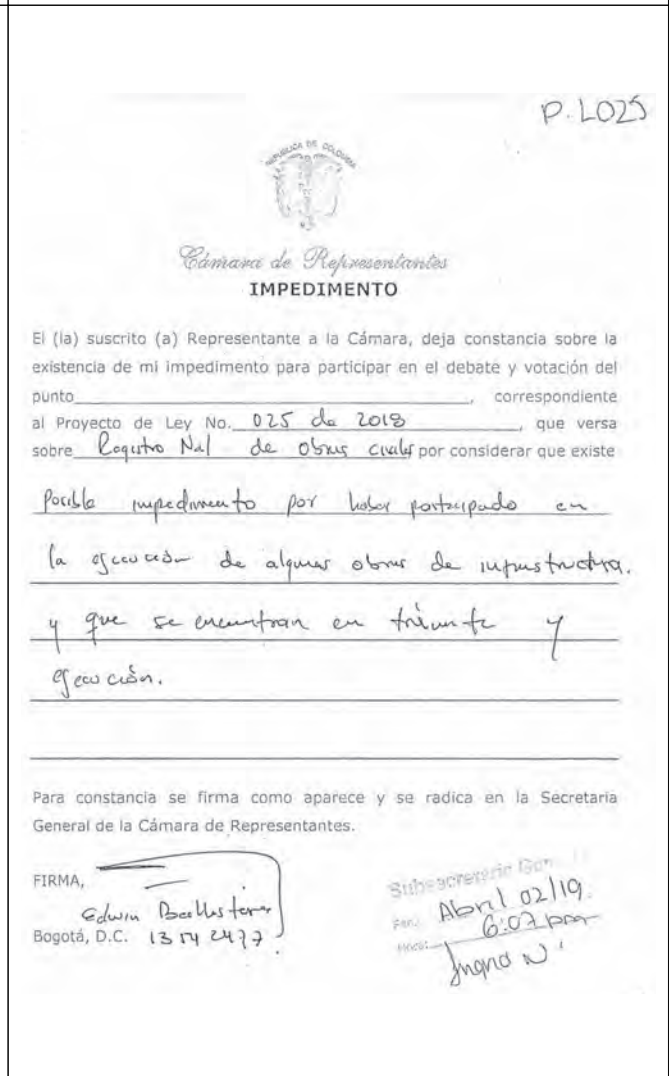 P.L025
REPUBLICA DE COLOMBIA
Cámara de Representantes
IMPEDIMENTO
El (la) suscrito (a) Representante a la Cámara, deja constancia sobre la
existencia de mi impedimento para participar en el debate y votación del
punto____________________, correspondiente
al Proyecto de Ley No. 025 de 2018, que versa
sobre Registro Nal de obras civiles por considerar que existe
Posible impedimento por haber participado en
la ejecución de algunas obras de infraestructura.
y que se encuentran en trámite y
ejecución.
Para constancia se firma como aparece y se radica en la Secretaria
General de la Cámara de Representantes.
FIRMA,
Edwin Ballesteros
Bogotá, D.C. 13542477
Subsecretaría
Abril 02/19.
6:07 pm